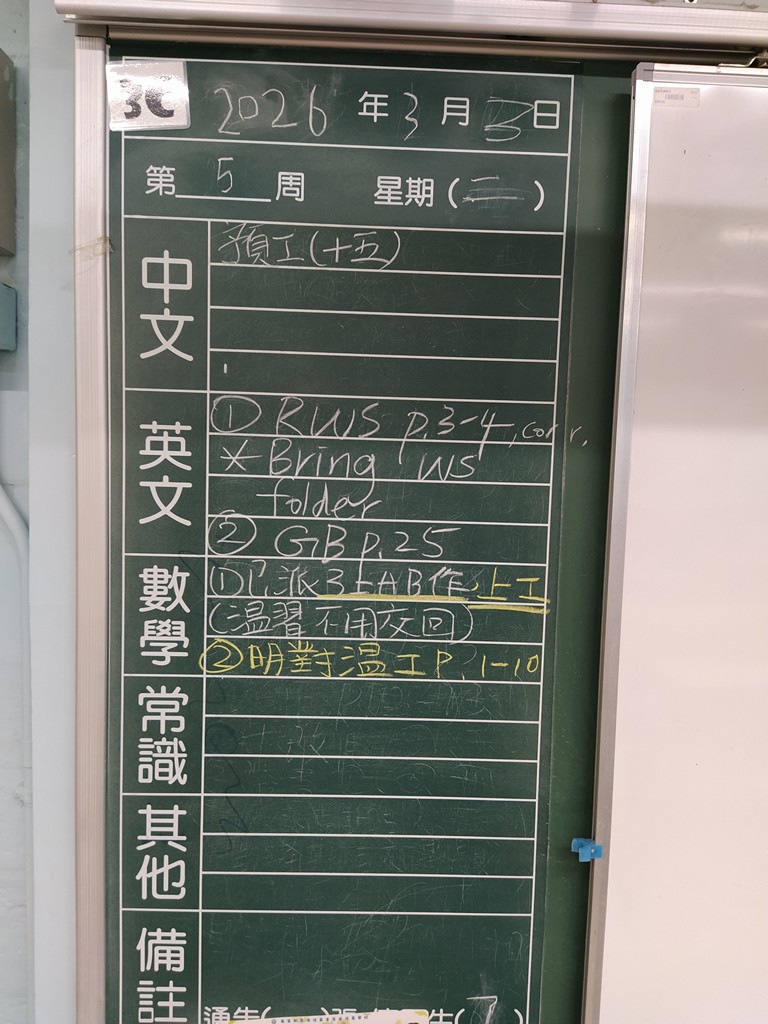 3C
2026年3月3日
第5周 星期(二)
中文
預工(十五)
英文
① RWS p.3-4, corr.
* Bring WS
folder
② GB p.25
數學
①已派3上AB作上工
(溫習不用交回)
②明對溫工P.1-10
常識
其他
備註
通告( )張